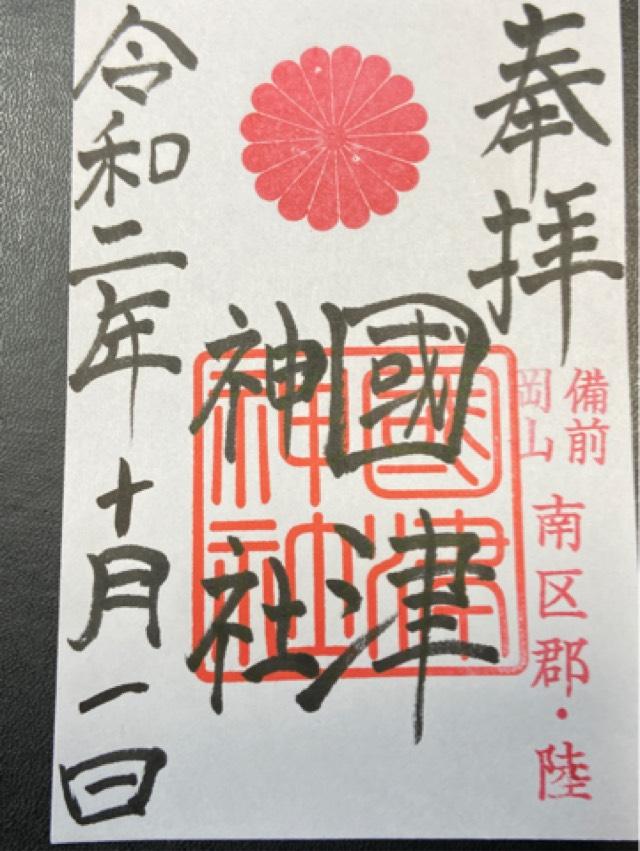 奉拝
備前
岡山
南区郡・陸
國津
神社
國津
神社
令和二年十月一日